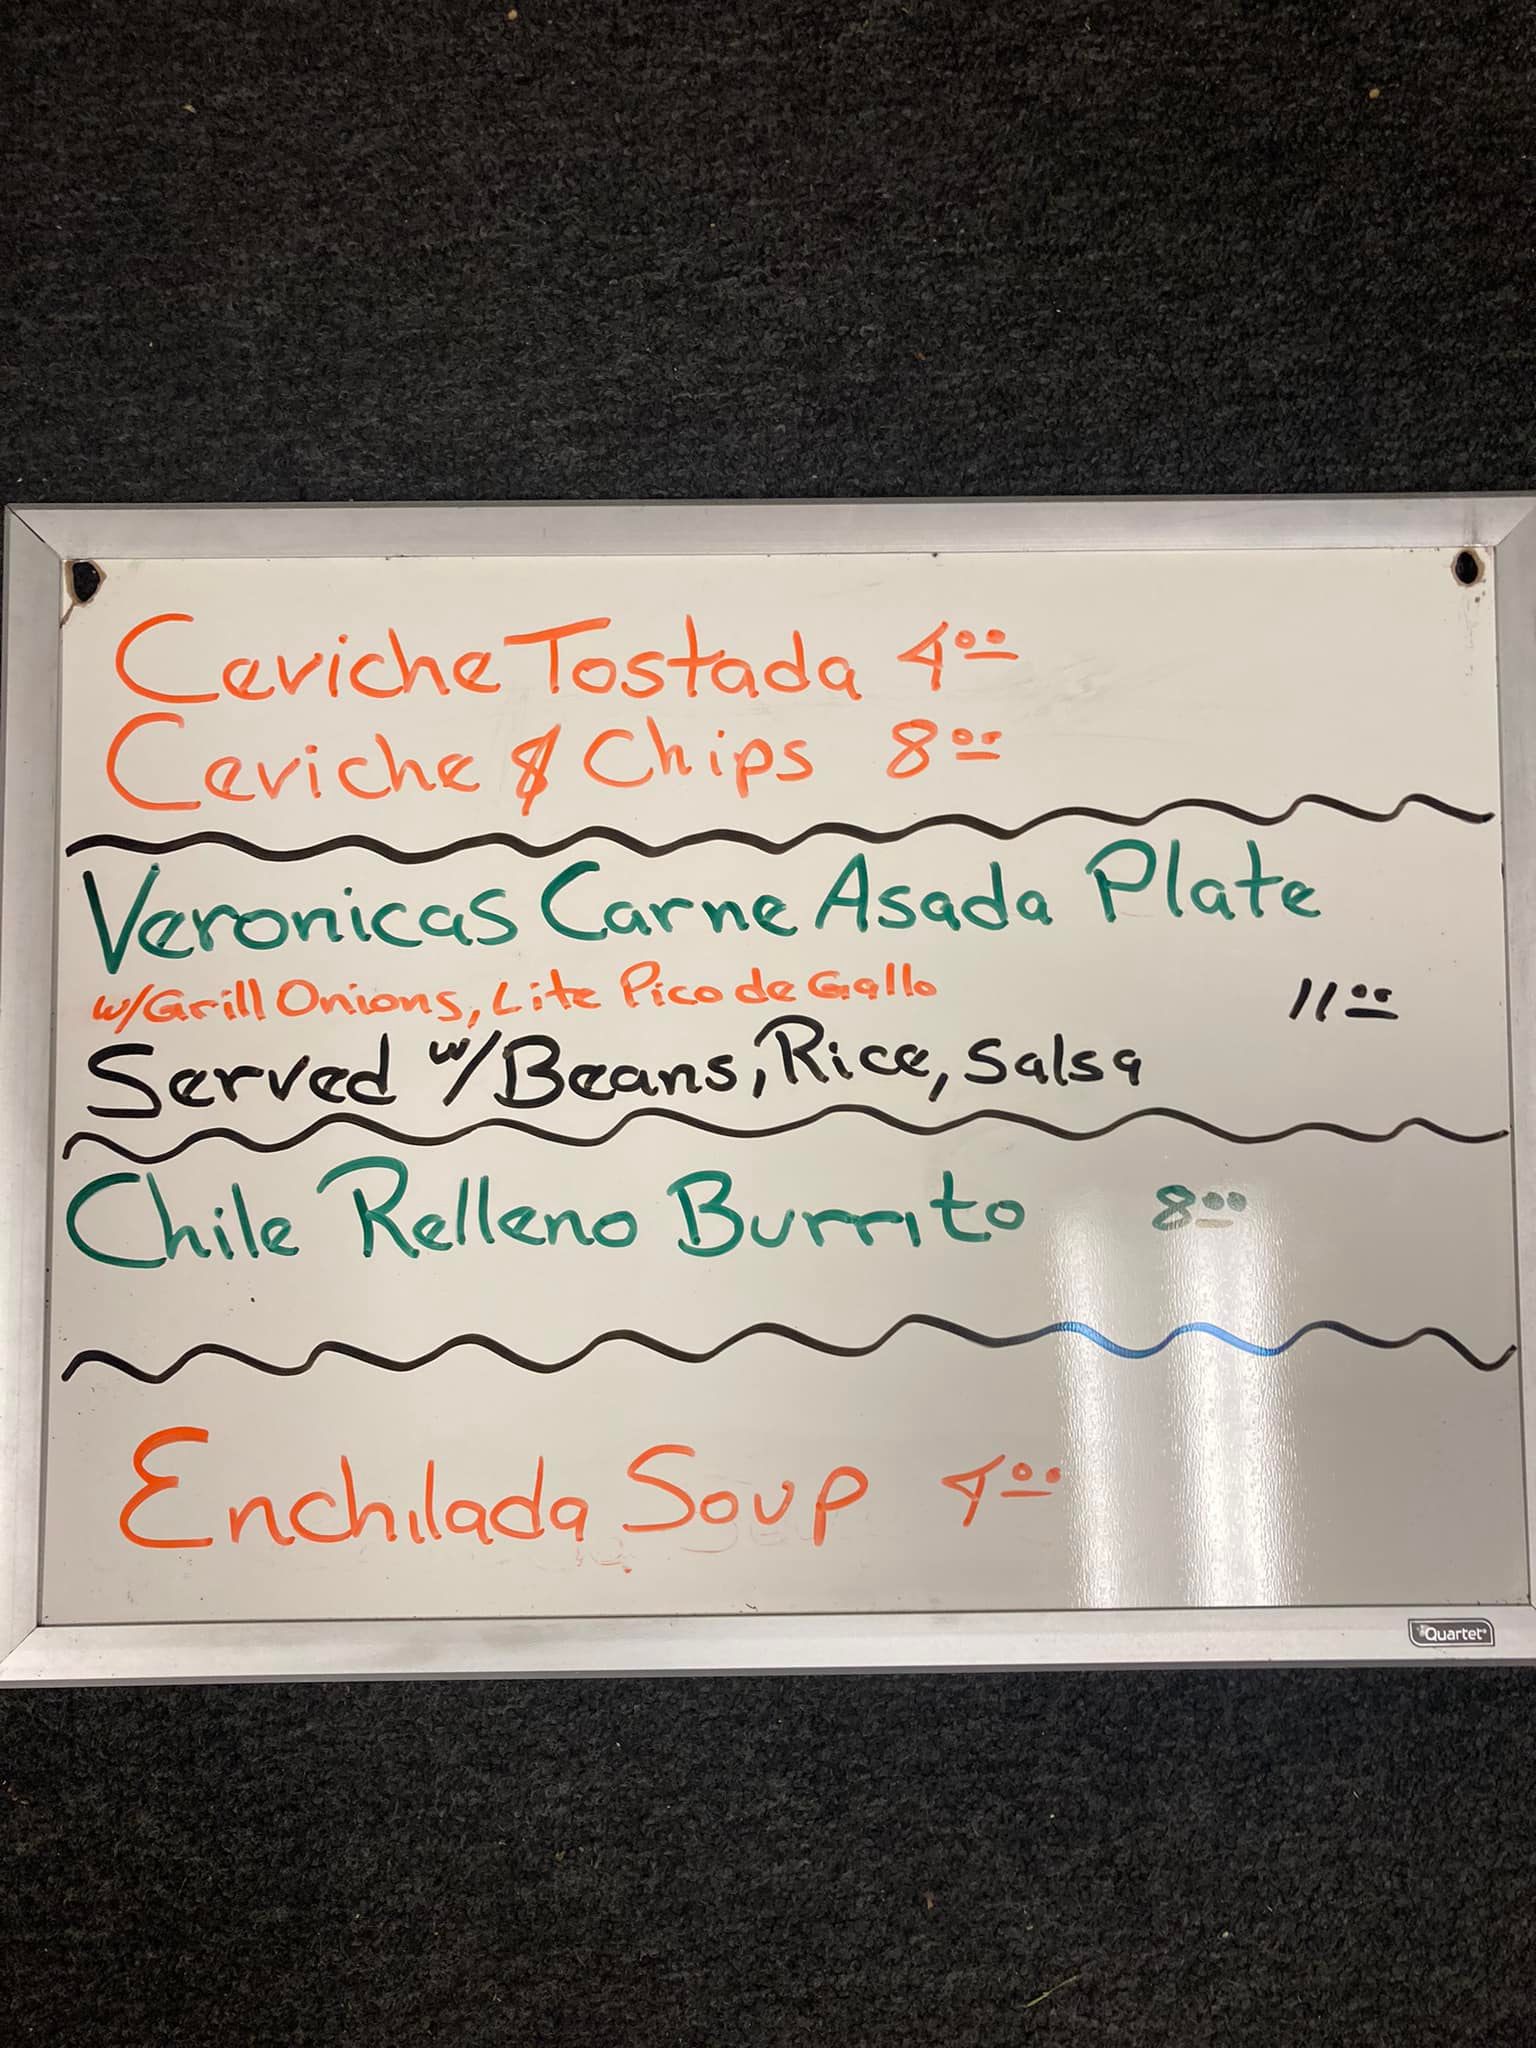 Ceviche Tostada 4⁰⁰
Ceviche & Chips 8⁰⁰
Veronicas Carne Asada Plate
w/Grill Onions, Lite Pico de Gallo 11⁰⁰
Served w/Beans, Rice, Salsa
Chile Relleno Burrito 8⁰⁰
Enchilada Soup 4⁰⁰
Quartet